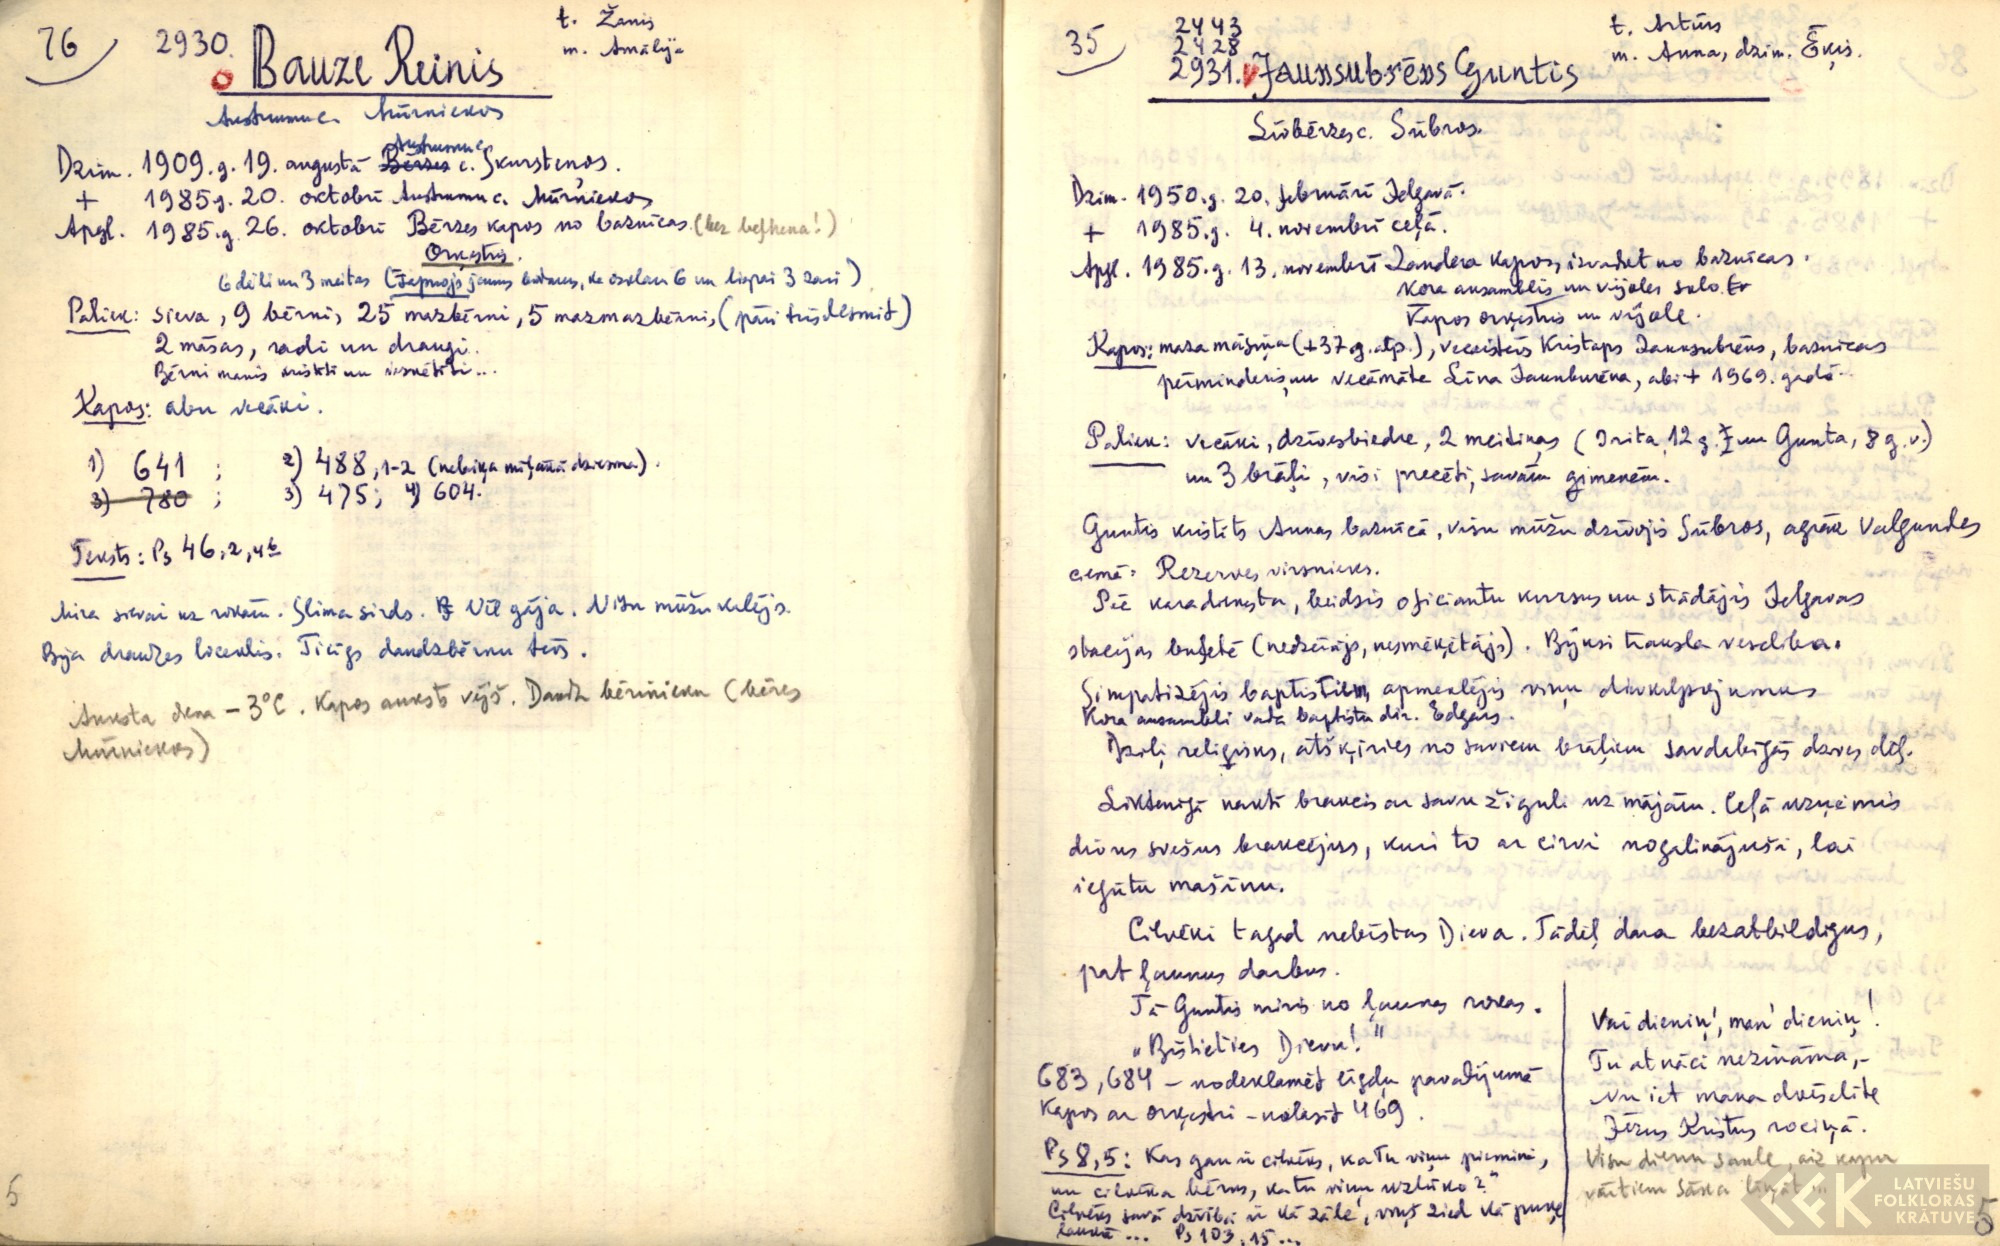 76
2930.
t. Žanis
m. Amālija
Bauze Reinis
Austrumu c. Mūrniekos
Austrumu
Dzim. 1909.g. 19. augustā Bērzes c. Skurstenos.
+ 1985.g. 20. oktobrī Austrumu c. Mūrniekos
Apgl. 1985.g. 26. oktobrī Bērzes kapos no baznīcas. (bez!)
Orķestris.
6 dēli un 3 meitas (jaunus, ka ozolam 6 un liepai 3 zari)
Paliek: sieva, 9 bērni, 25 mazbērni, 5 mazmazbērni, (pāri trīsdesmit)
2 māsas, radi un draugi.
Bērni manis kristīti un iesvētīti...
Kapos: abu vecāki.
1) 641 ; 2) 488, 1-2 (nebija mīļākā dziesma).
3) 780 ; 3) 475; 4) 604.
Teksts: Ps 46, 2, 4b
Mira sievai uz rokām. Slima sirds. Vēl gāja. Visu mūžu kalējs.
Bija draudzes loceklis. Ticīgs daudzbērnu tēvs.
Auksta diena – 3°C. Kapos auksts vējš. Daudz bērinieku (bēres
Mūrniekos)
5
35
2443
2428
2931.
t. Artūrs
m. Anna, dzim. Ēķis.
Jaunsubrēns Guntis
Līvbērzes c. Sūbros.
Dzim. 1950.g. 20. februārī Jelgavā.
+ 1985.g. 4. novembrī ceļā.
Apgl. 1985.g. 13. novembrī Zandera kapos, izvadot no baznīcas.
Kora ansamblis un vijoles solo.
Kapos orķestris un vijole.
Kapos: maza māsiņa (+37.g. atp.), vectētiņš Kristaps Jaunsubrēns, baznīcas
pērminderis, un vecāmāte Līna Jaunburēna, abi + 1969. gadā.
Paliek: vecāki, dzīvesbiedre, 2 meitiņas (Irita, 12 g. un Gunta, 8 g. v.)
un 3 brāļi, visi precēti, savām ģimenēm.
Guntis kristīts Annas baznīcā, visu mūžu dzīvojis Sūbros, agrāk Valgundes
ciemā. Rezerves virsnieks.
Pēc karadienesta, beidzis oficiantu kursus un strādājis Jelgavas
stacijas bufetē (nedzērājs, nesmēķētājs). Bijusi trausla veselība.
Simpatizējis baptistiem, apmeklējis viņu dievkalpojumus
Kora ansambli vada baptistu dir. Edgars.
Dziļi reliģisks, atšķīries no saviem brāļiem savdabīgās dzīves dēļ.
Liktenīgā naktī braucis ar savu žiguli uz mājām. Ceļā uzņēmis
divus svešus braucējus, kuri to ar cirvi nogalinājuši, lai
iegūtu mašīnu.
Cilvēki tagad nebīstas Dieva. Tādēļ dara bezatbildīgus,
pat ļaunus darbus.
Tā Guntis miris no ļaunas rokas.
„Bīstieties Dievu!"
683, 684 – nodeklamēt ērģeļu pavadījumā
Kapos ar orķestri – nolasīt 469.
Ps 8,5: Kas gan ir cilvēks, ka tu viņu piemini,
un cilvēka bērns, ka tu viņu uzlūko?"
Cilvēks savā dzīvībā ir kā zāle, viņš zied kā puķe
laukā... Ps 103, 15...
Vai dieniņ', man' dieniņ!
Tu atnāci nezināma, –
Nu iet mana dvēselīte
Jēzus Kristus rociņā.
Visu dienu saule, aiz kapu
vārtiem sāka līņāt...
LATVIEŠU
FOLKLORAS
KRĀTUVE
5